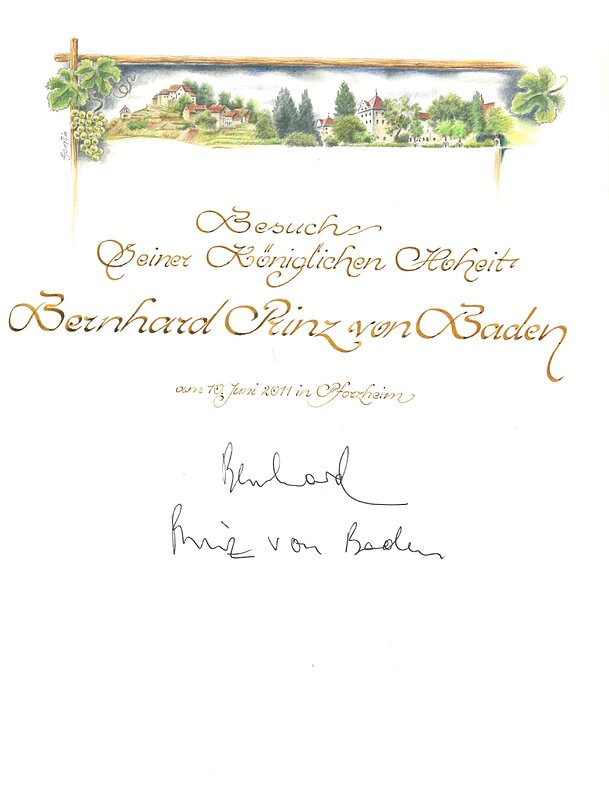 Besuch
Seiner Königlichen Hoheit
Bernhard Prinz von Baden
am 10. Juni 2011 in Pforzheim
Bernhard
Prinz von Baden